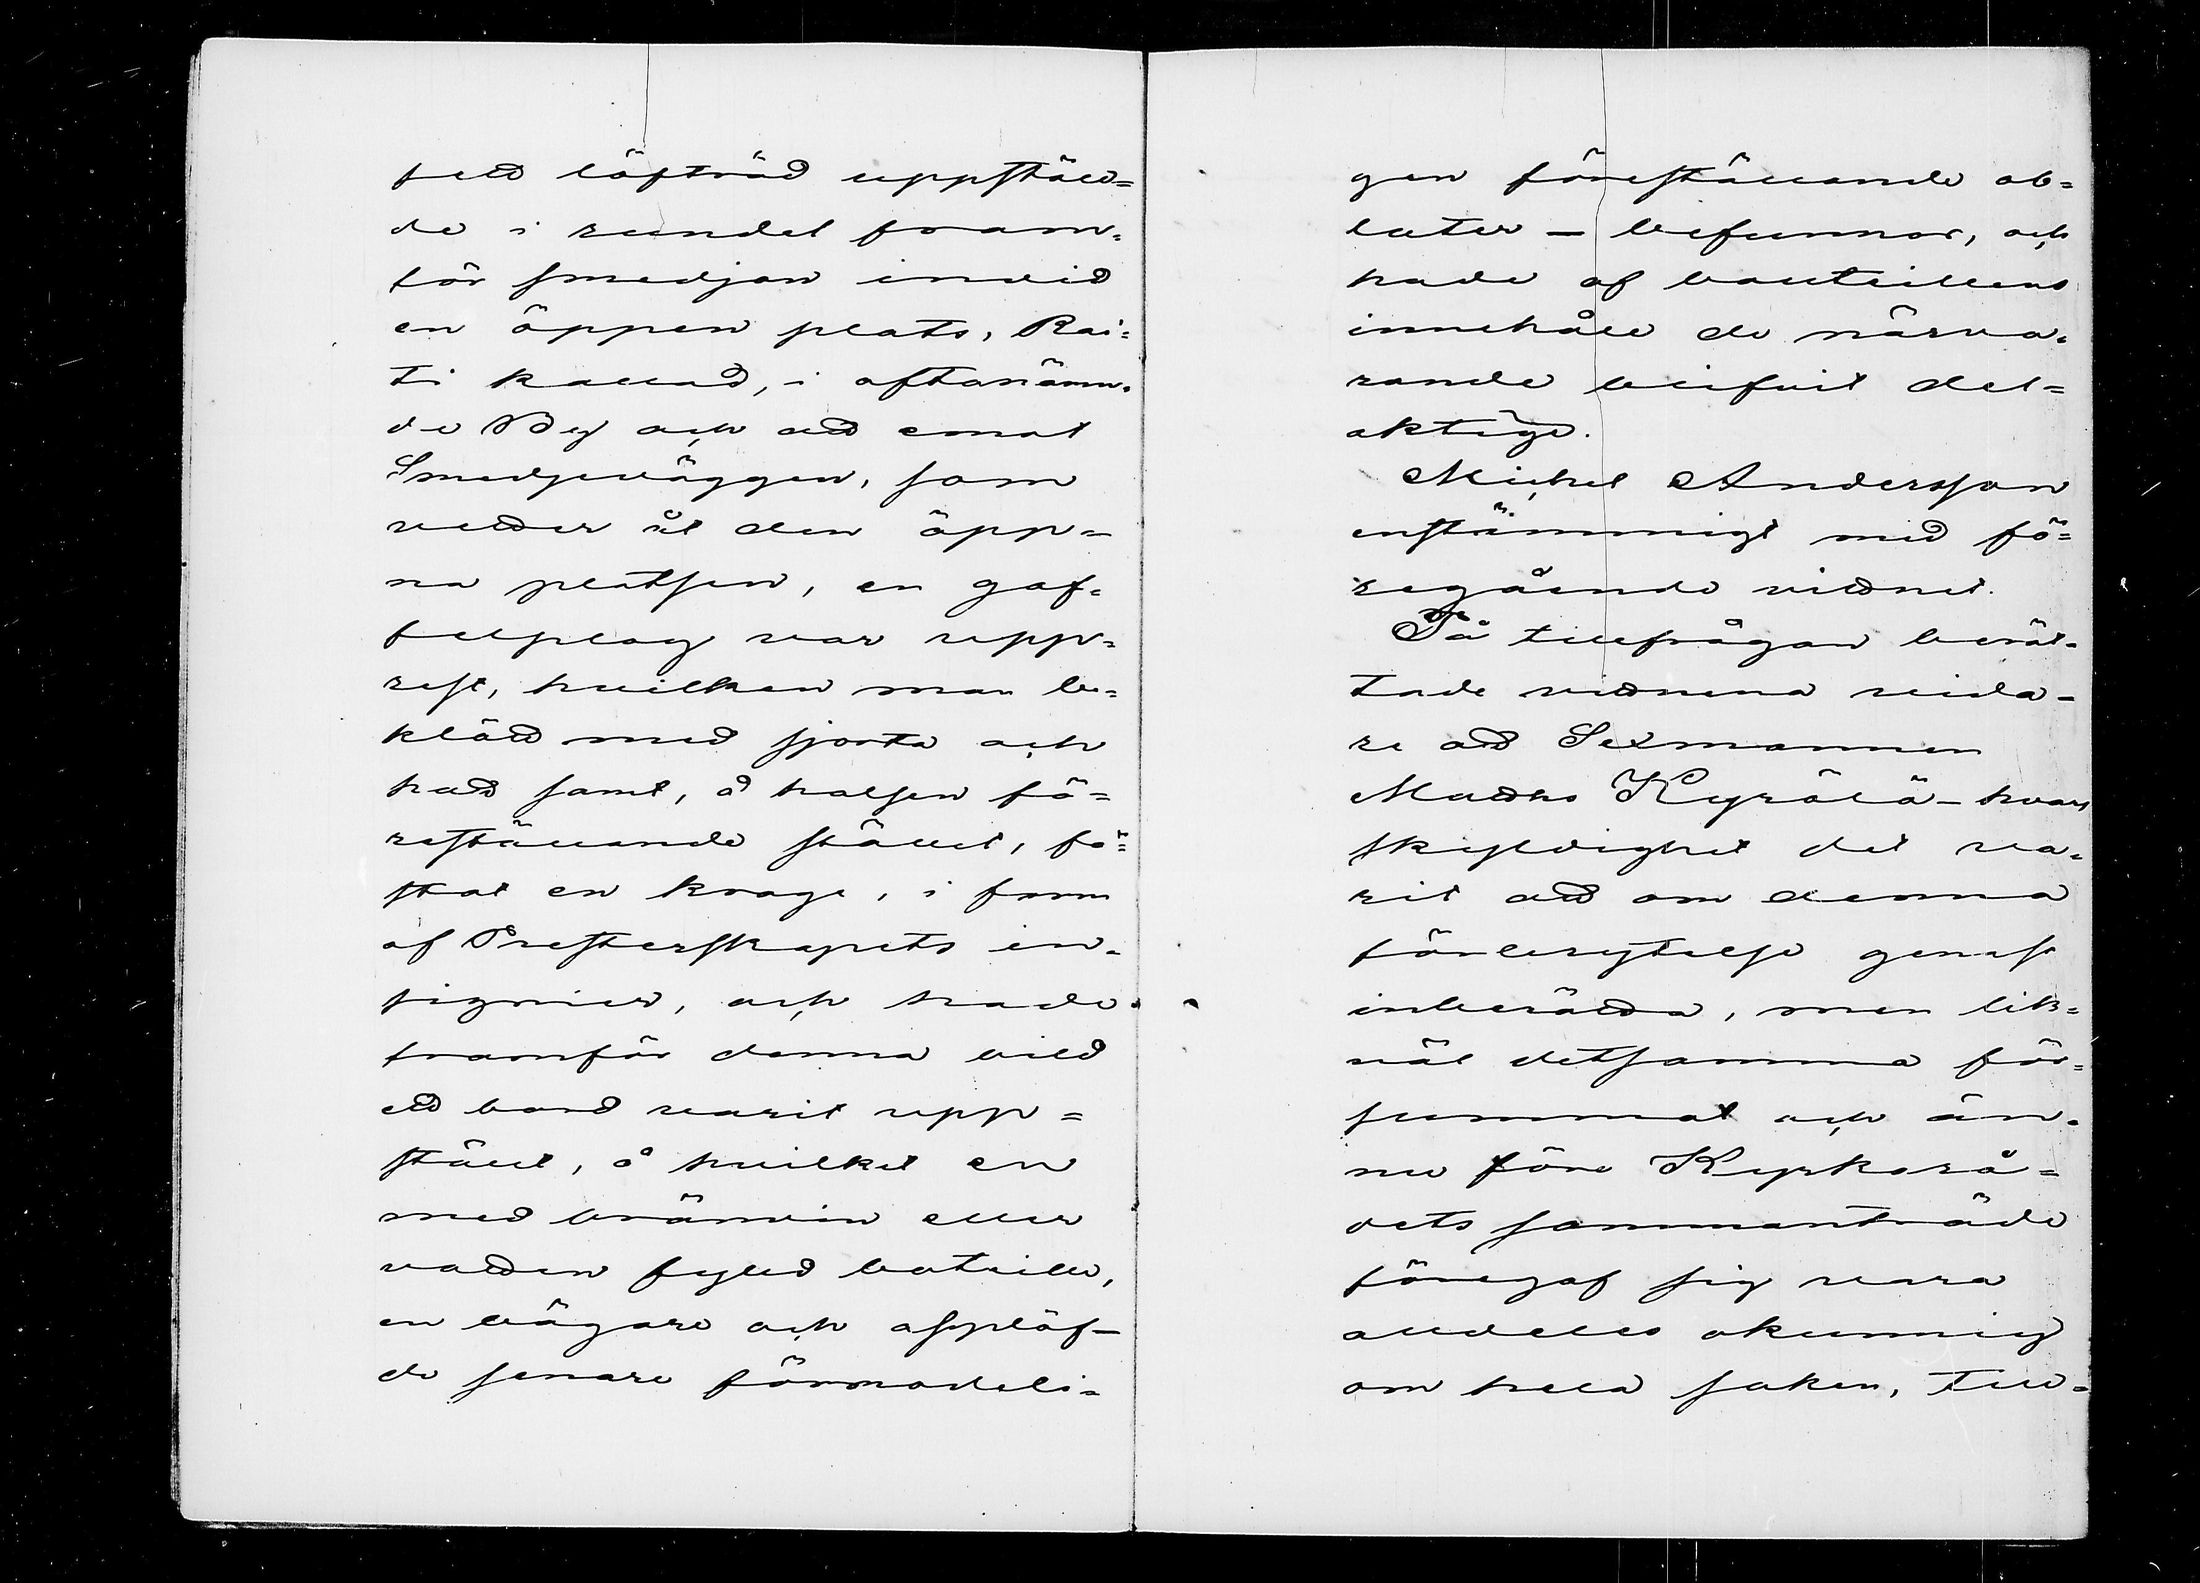 sett löfträd uppstäld=
de i rundel fram=
för smedjan invid
en öppen plats, Rai=
ti kallad, i oftanämn=
de By och att emot
Smedjeväggen, som
vetter åt den öpp=
na platsen, en gaf=
felplog var upp=
rest, hvilken man be=
klädt med sjorta och
hatt samt, å halsen fö=
reställande stället, fä=
stat en krage, i form
af Presterskapets in=
signier, och hade
framför denna bild
ett bord varit upp=
stält, å hvilket en
med bränvin eller
vatten fyld boteille,
en bägare och
de senare förmodeli=
gen föreställande ob=
later — befunnos, och
hade af bouteillens
innehåll de närva=
rande blifvit del=
aktige.
Michel Andersson
enstämmigt med fö=
regående vittnet.
På tillfrågan berät=
tade vittnena vida=
re att Sexmannen
Matths Kyrölä — hvars
skyldighet det va=
rit att om denna
förlerytelse genast
inberätta, men lik=
väl detsamma för=
summat och än=
nu före Kyrkorå=
dets sammanträde
föregaf sig vara
alldeles okunnig
om hela saken, till=